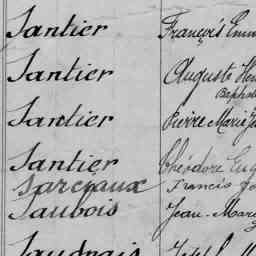 Santier François Emm
Santier Auguste Hen
Bapho
Santier Pierre Marie Je
Santier Théodore Eug
Sarciaux Francis Jo
Saubois Jean-Mare
Saudrais